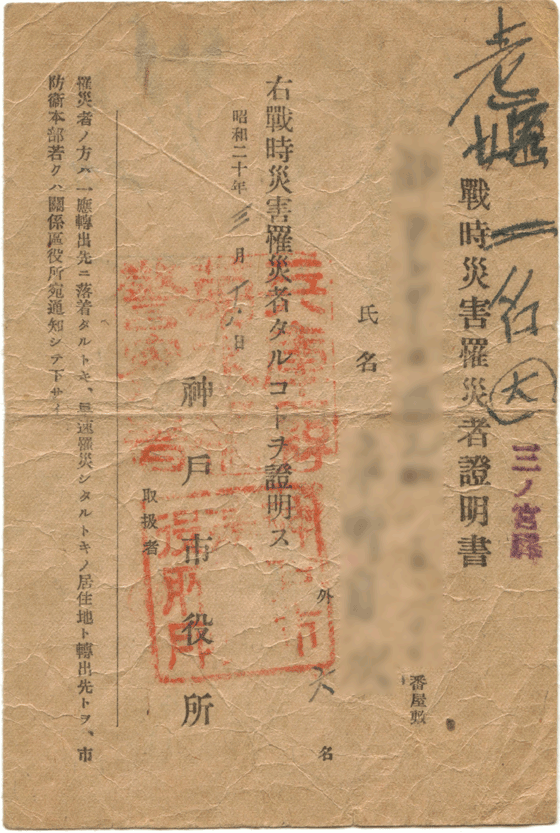 老媼一名 大
三ノ宮驛
戰時災害罹災者證明書
番屋敷
氏名
外 名
右戰時災害罹災者タルコトヲ證明ス
昭和二十年三月十八日
神戸市役所
取扱者
罹災者ノ方ハ一應轉出先ニ落着タルトキ、早速罹災シタルトキノ居住地ト轉出先トヲ、市
防衞本部若クハ關係區役所宛通知シテ下サイ